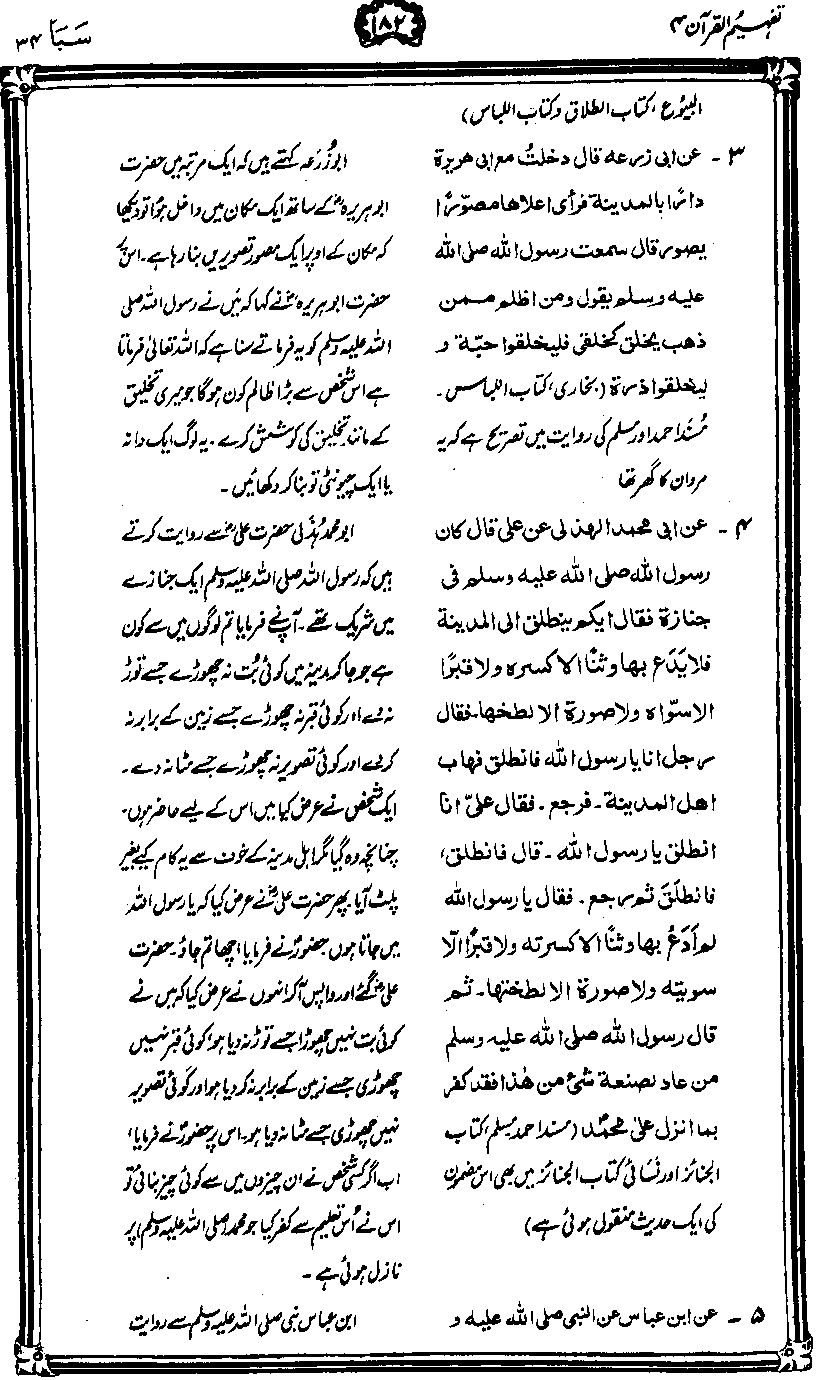 تفہیم القرآن ۴
۱۸۲
سَبَا ۳۴
البیوع، کتاب الطلاق وکتاب اللباس)
۳ - عن ابی زرعہ قال دخلتُ مع ابی ھریرة
دارًا بالمدینة فرأی اعلاھا مصوّرًا
یصور قال سمعت رسول اللہ صلی اللہ
علیہ وسلم یقول ومن اظلم ممن
ذھب یخلق کخلقی فلیخلقوا حبّة و
لیخلقوا ذرة (بخاری، کتاب اللباس۔
مُسنَد احمد اور مسلم کی روایت میں تصریح ہے کہ یہ
مروان کا گھر تھا
ابو زُرعہ کہتے ہیں کہ ایک مرتبہ میں حضرت
ابو ہریرہؓ کے ساتھ ایک مکان میں داخل ہوا تو دیکھا
کہ مکان کے اوپر ایک مصور تصویریں بنا رہا ہے۔ اس پر
حضرت ابو ہریرہؓ نے کہا کہ میں نے رسول اللہ صلی
اللہ علیہ وسلم کو یہ فرماتے سنا ہے کہ اللہ تعالیٰ فرماتا
ہے اس شخص سے بڑا ظالم کون ہوگا جو میری تخلیق
کے مانند تخلیق کی کوشش کرے۔ یہ لوگ ایک دانہ
یا ایک چیونٹی تو بنا کر دکھائیں۔
۴ - عن ابی محمد الھذلی عن علی قال کان
رسول اللہ صلی اللہ علیہ وسلم فی
جنازة فقال ایکم ینطلق الی المدینة
فلا یَدَع بھا وثنًا الا کسرہ ولا قبرًا
الا سوّاہ ولا صورة الا لطخھا۔ فقال
رجل انا یا رسول اللہ فانطلق فھاب
اھل المدینة۔ فرجع۔ فقال علیّ انا
انطلق یا رسول اللہ۔ قال فانطلق،
فانطلَقَ ثم رجع۔ فقال یا رسول اللہ
لم اَدَعْ بھا وثنًا الا کسرته ولا قبرًا الّا
سویته ولا صورة الا لطختھا۔ ثم
قال رسول اللہ صلی اللہ علیہ وسلم
من عاد لصنعة شئ من ھٰذا فقد کفر
بما انزل علیٰ محمد (مسند احمد مسلم، کتاب
الجنائز اور نسائی کتاب الجنائز میں بھی اس مضمون
کی ایک حدیث منقول ہوئی ہے)
ابو محمد ہُذَلی حضرت علیؓ سے روایت کرتے
ہیں کہ رسول اللہ صلی اللہ علیہ وسلم ایک جنازے
میں شریک تھے۔ آپؐ نے فرمایا تم لوگوں میں سے کون
ہے جو جا کر مدینہ میں کوئی بُت نہ چھوڑے جسے توڑ
نہ دے اور کوئی قبر نہ چھوڑے جسے زمین کے برابر نہ
کردے اور کوئی تصویر نہ چھوڑے جسے مٹا نہ دے۔
ایک شخص نے عرض کیا میں اس کے لیے حاضر ہوں۔
چنانچہ وہ گیا مگر اہل مدینہ کے خوف سے یہ کام کیے بغیر
پلٹ آیا۔ پھر حضرت علیؓ نے عرض کیا کہ یا رسول اللہ
میں جاتا ہوں۔ حضورؐ نے فرمایا، اچھا تم جاؤ۔ حضرت
علیؓ گئے اور واپس آکر انھوں نے عرض کیا کہ میں نے
کوئی بت نہیں چھوڑا جسے توڑ نہ دیا ہو، کوئی قبر نہیں
چھوڑی جسے زمین کے برابر نہ کر دیا ہو اور کوئی تصویر
نہیں چھوڑی جسے مٹا نہ دیا ہو۔ اس پر حضورؐ نے فرمایا،
اب اگر کسی شخص نے ان چیزوں میں سے کوئی چیز بنائی تو
اس نے اُس تعلیم سے کفر کیا جو محمد (صلی اللہ علیہ وسلم) پر
نازل ہوئی ہے۔
۵ - عن ابن عباس عن النبی صلی اللہ علیہ و
ابن عباس نبی صلی اللہ علیہ وسلم سے روایت